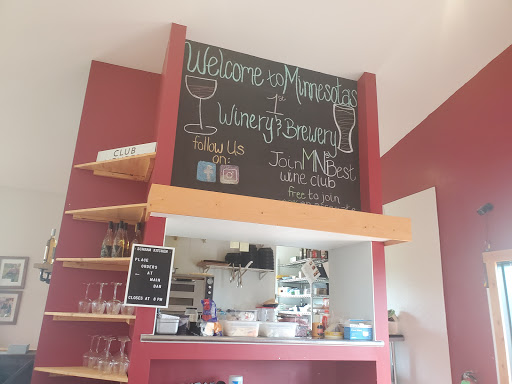 Welcome to Minnesotas
1st
Winery & Brewery
follow Us
on:
Join MN's Best
wine club
free to join
CLUB
KITCHEN
PLACE
ORDERS
AT
MAIN
BAR
CLOSED AT 8 PM